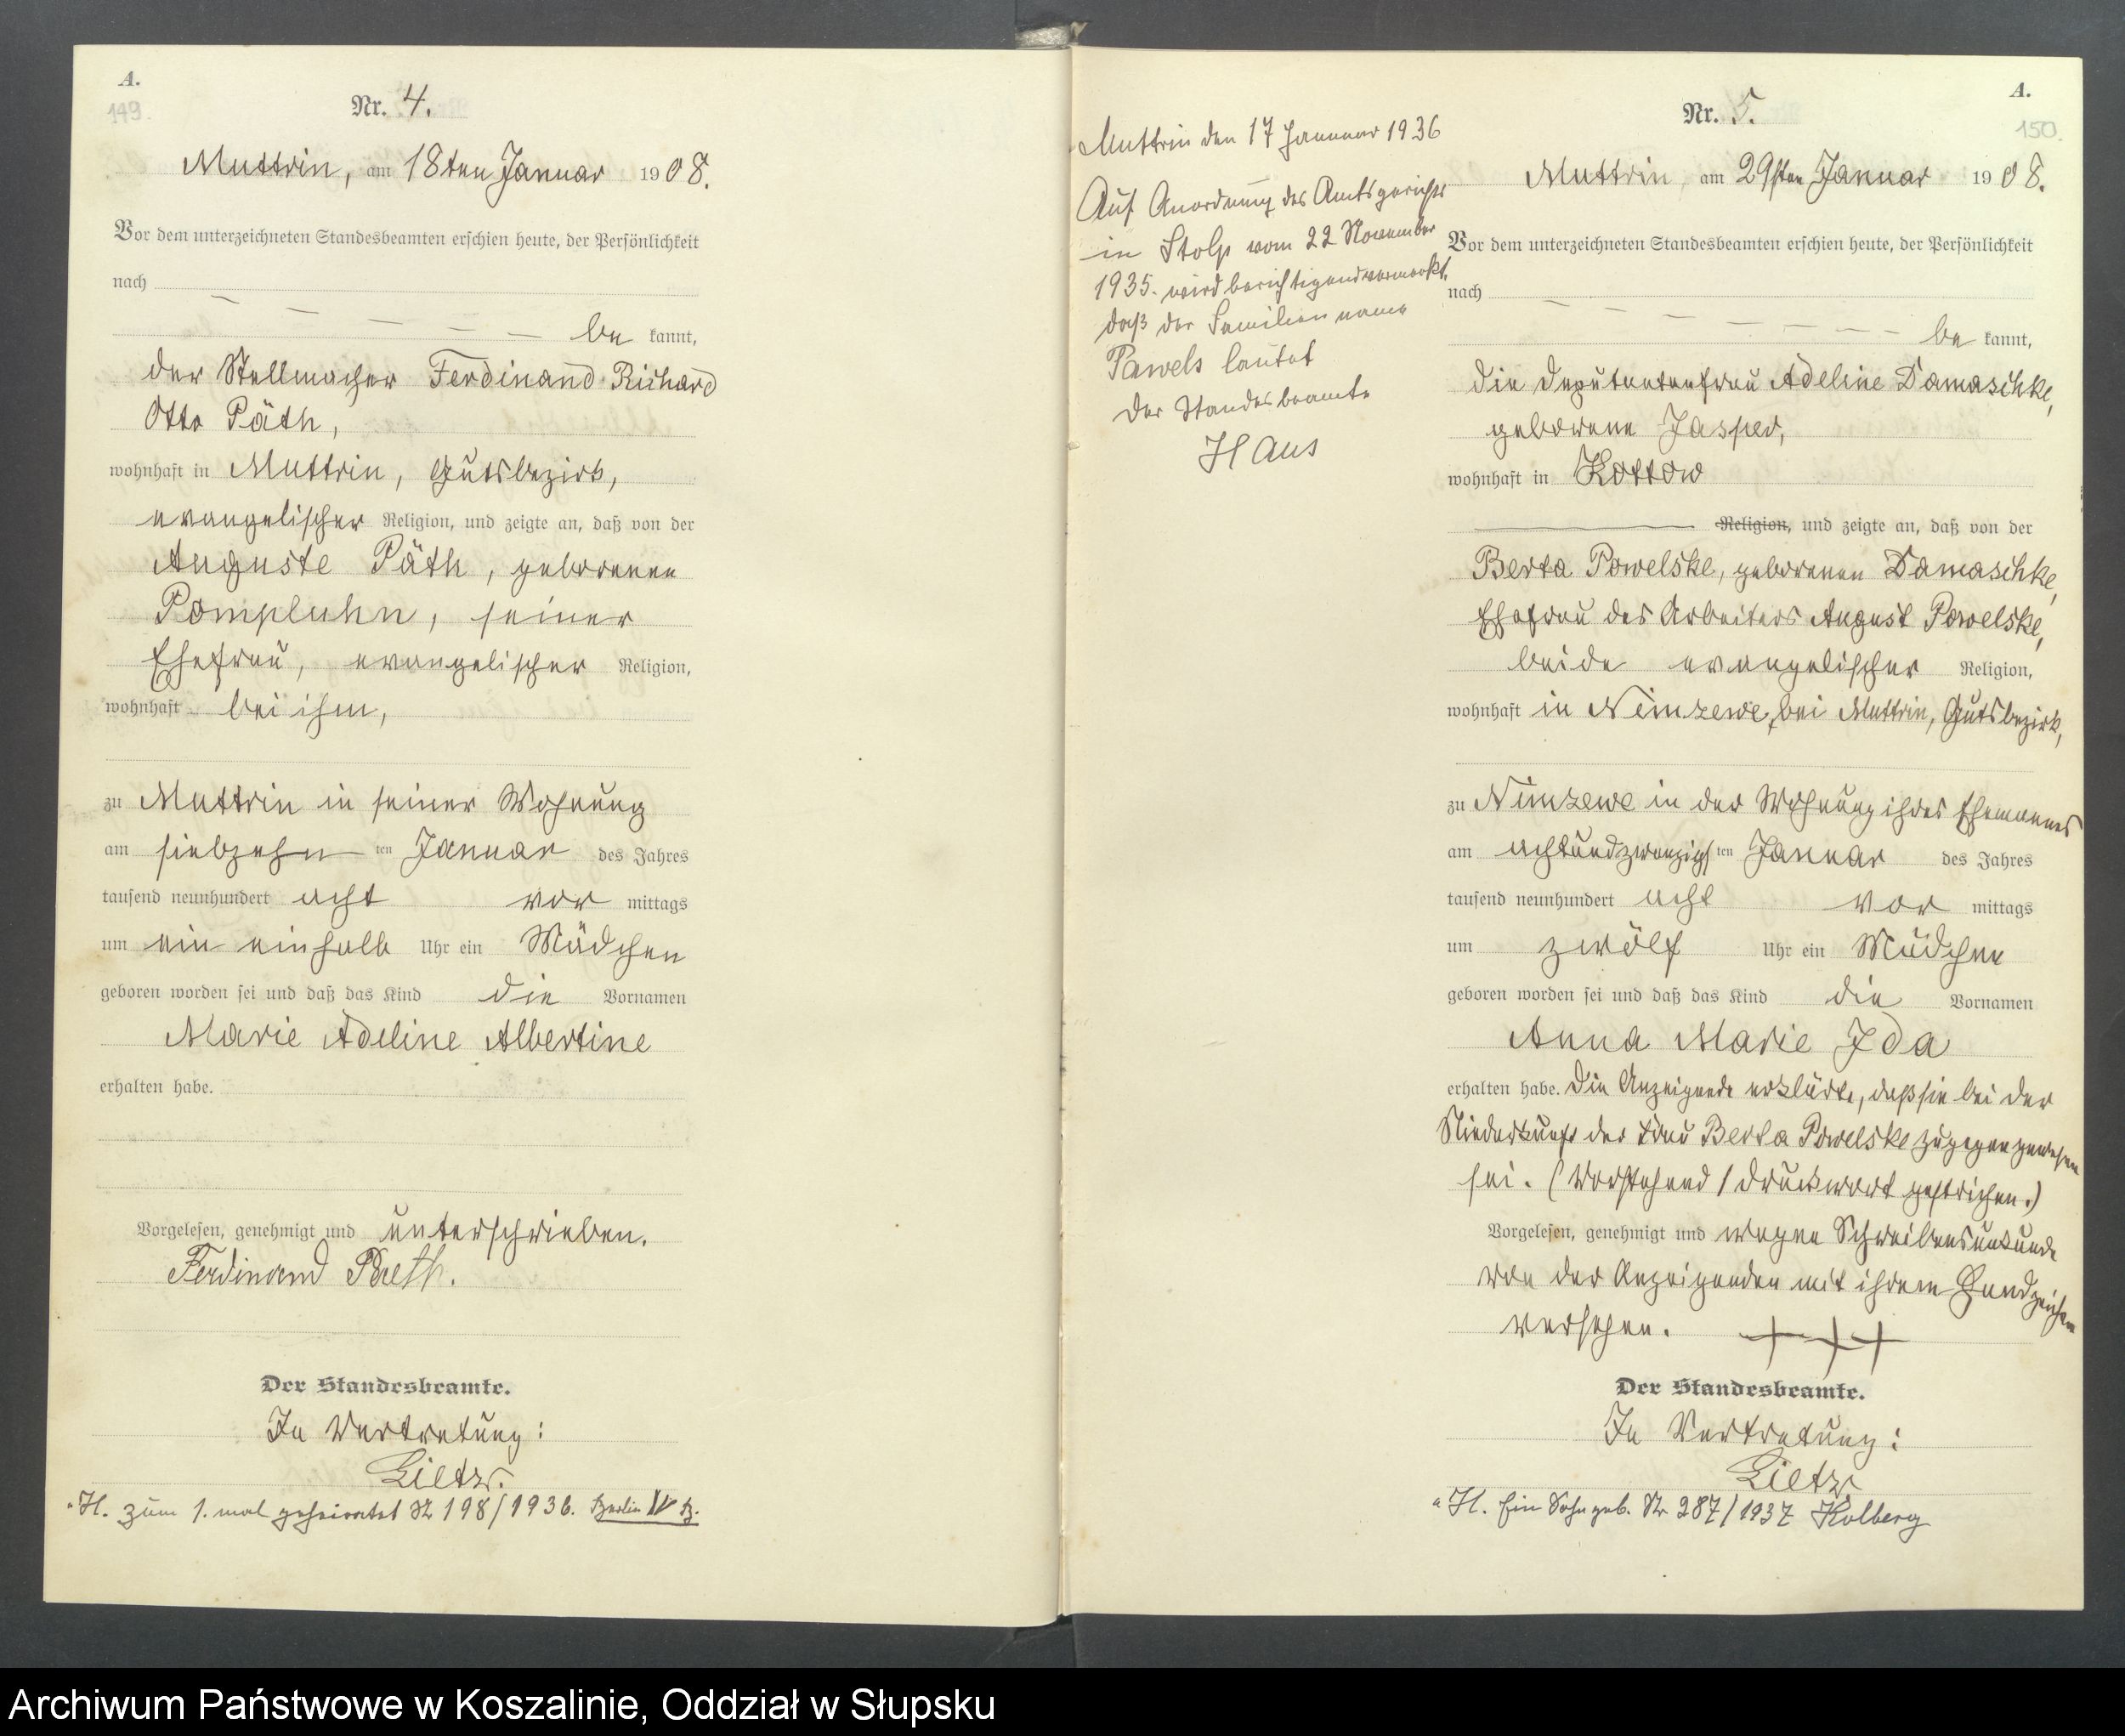 A.
149.
Nr. 4.
Muttrin, am 18ten Januar 1908.
Vor dem unterzeichneten Standesbeamten erschien heute, der Persönlichkeit
nach
be kannt,
der Stellmacher Ferdinand Richard
Otto Päth,
wohnhaft in Muttrin, Gutsbezirk,
evangelischer Religion, und zeigte an, daß von der
Auguste Päth, geborenen
Pompluhn, seiner
Ehefrau, evangelischer Religion,
wohnhaft bei ihm,
zu Muttrin in seiner Wohnung
am siebzehn ten Januar des Jahres
tausend neunhundert acht vor mittags
um ein einhalb Uhr ein Mädchen
geboren worden sei und daß das Kind die Vornamen
Marie Adeline Albertine
erhalten habe.
Vorgelesen, genehmigt und unterschrieben.
Ferdinand Paeth.
Der Standesbeamte.
In Vertretung:
Lietz.
H. zum 1. mal geheiratet Nr 198/1936. Berlin
Muttrin den 17 Januar 1936
Auf Anordnung des Amtsgerichts
in Stolp vom 22 November
1935. wird berichtigend vermerkt,
daß der Familienname
Pawels lautet
Der Standesbeamte
Haus
A.
150.
Nr. 5.
Muttrin, am 29sten Januar 1908.
Vor dem unterzeichneten Standesbeamten erschien heute, der Persönlichkeit
nach
be kannt,
die Deputantenfrau Adeline Damaschke,
geborene Jasper,
wohnhaft in Kottow
Religion, und zeigte an, daß von der
Berta Powelske, geborenen Damaschke,
Ehefrau des Arbeiters August Powelske,
beide evangelischer Religion,
wohnhaft in Nimzewe, bei Muttrin, Gutsbezirk,
zu Nimzewe in der Wohnung ihres Ehemannes
am achtundzwanzigs ten Januar des Jahres
tausend neunhundert acht vor mittags
um zwölf Uhr ein Mädchen
geboren worden sei und daß das Kind die Vornamen
Anna Marie Ida
erhalten habe. Die Anzeigende erklärte, daß sie bei der
Niederkunft der Frau Berta Powelske zugegen gewesen
sei. (Vorstehend 1 Druckwort gestrichen.)
Vorgelesen, genehmigt und wegen Schreibensunkunde
von der Anzeigenden mit ihrem Handzeichen
versehen. +++
Der Standesbeamte.
In Vertretung:
Lietz.
H. Ein Sohn geb. Nr 287/1937 Kolberg
Archiwum Państwowe w Koszalinie, Oddział w Słupsku